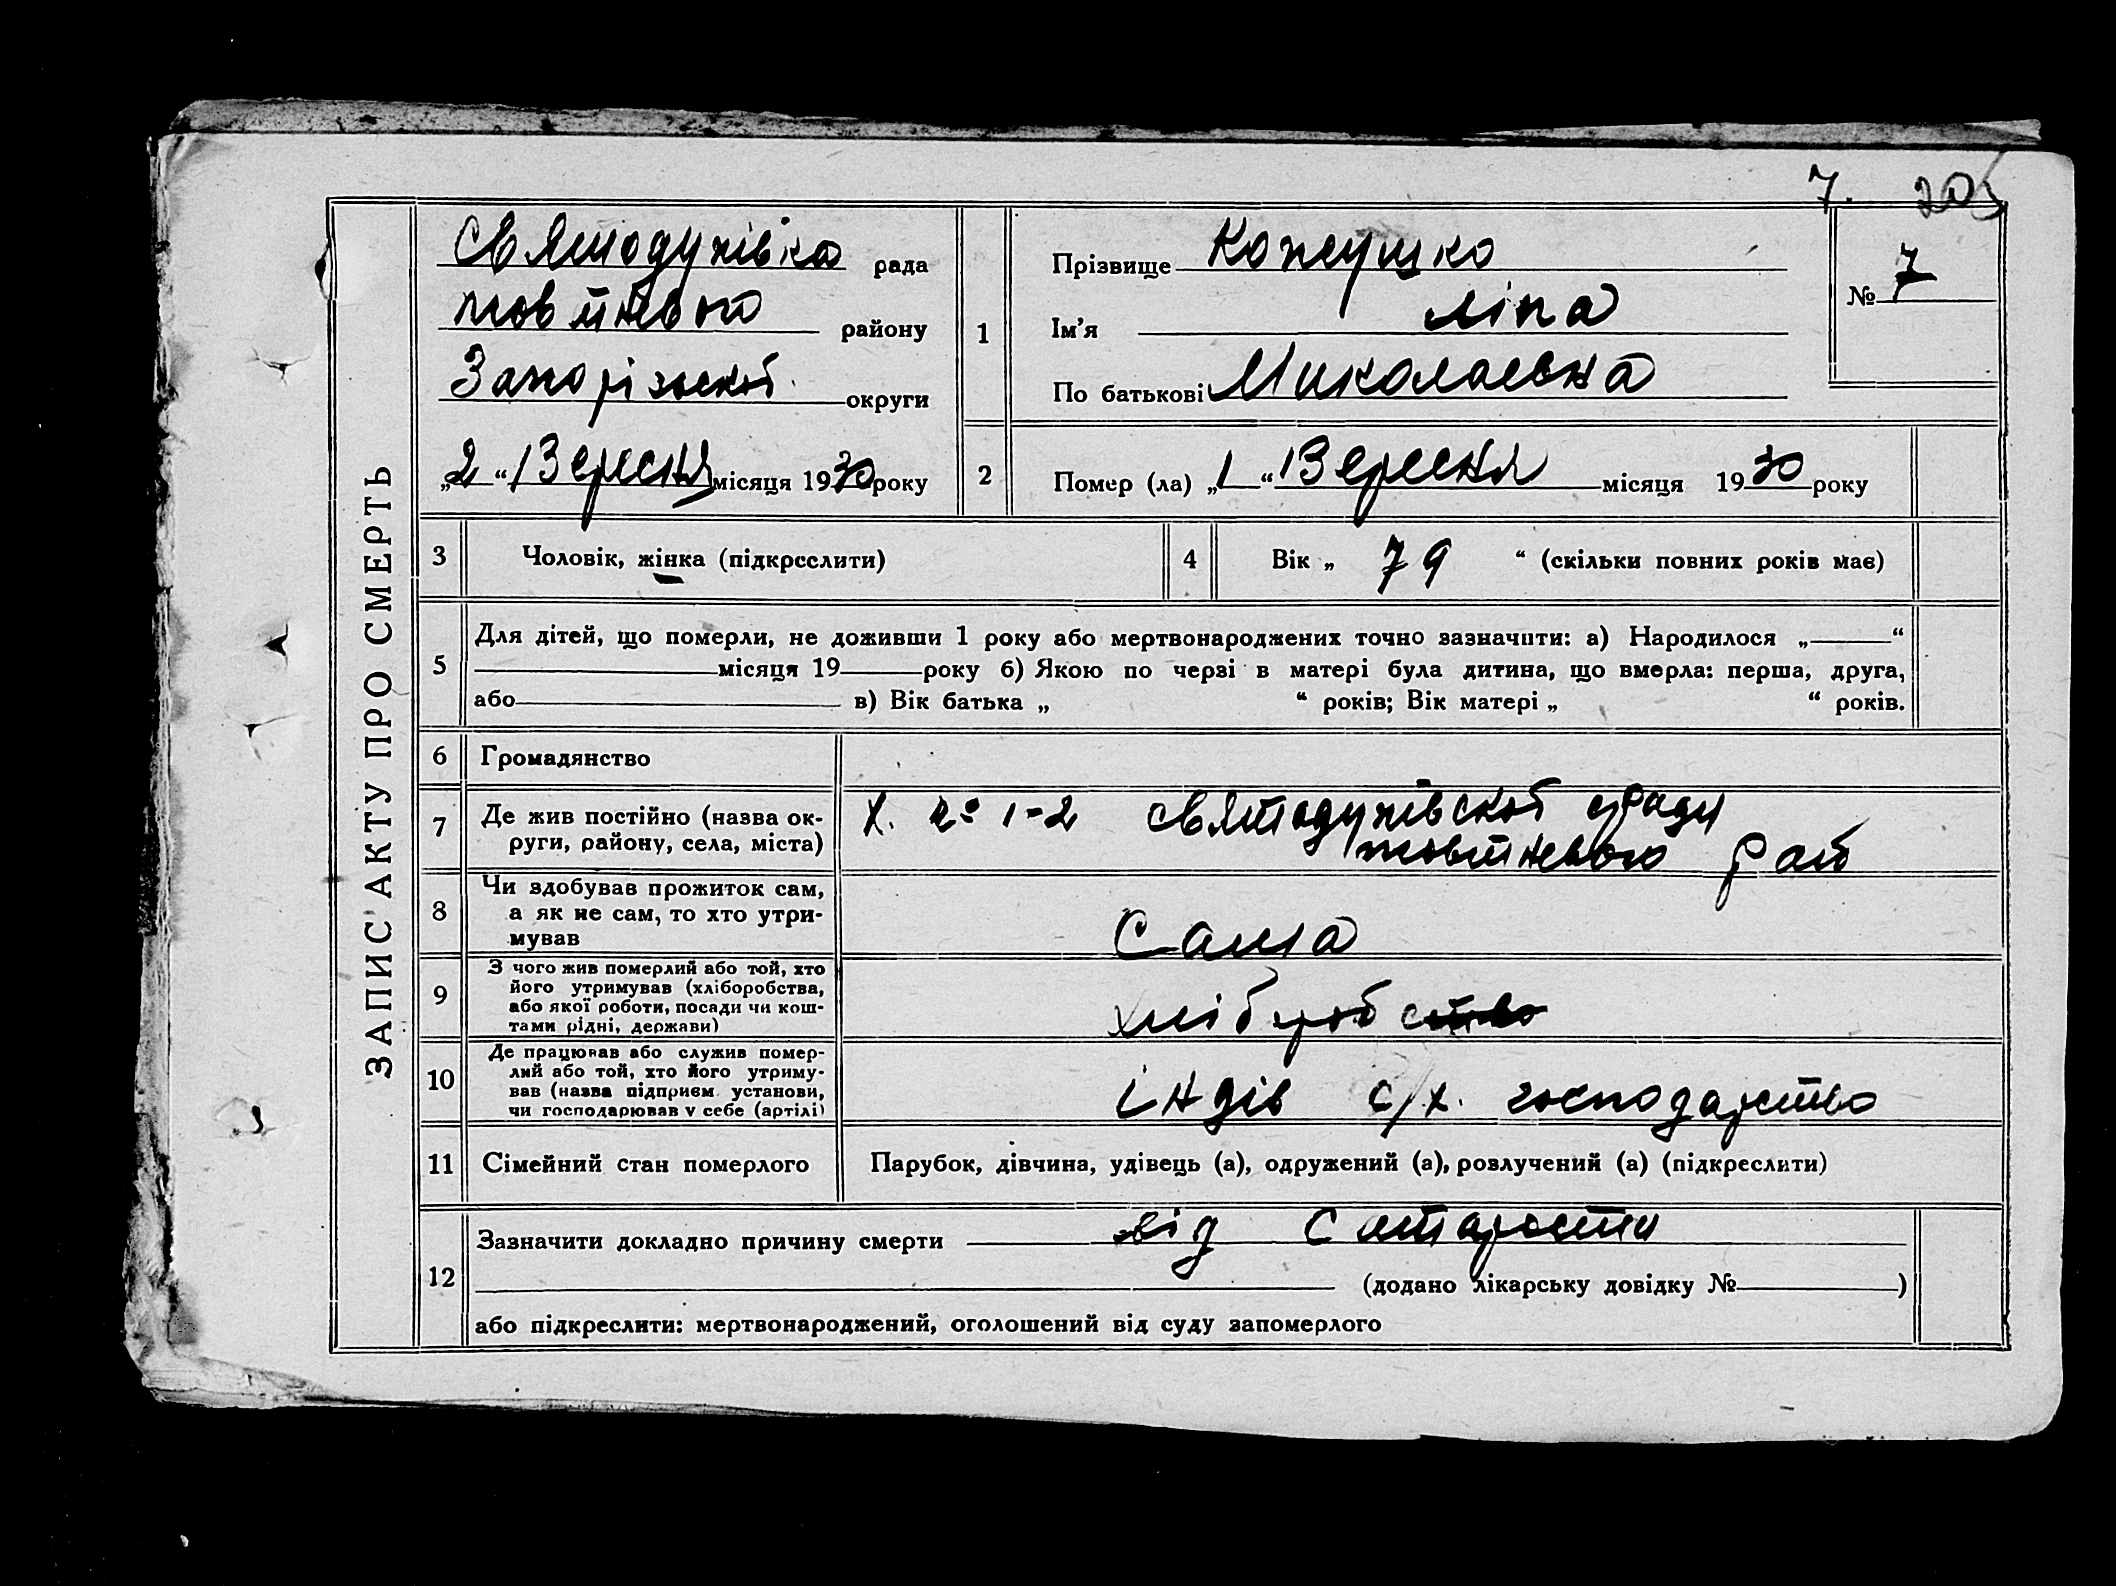 7. 205
ЗАПИС АКТУ ПРО СМЕРТЬ
Святодухівка рада
Жовтневого району
Запорізької округи
„2“ Вересня місяця 1930 року
1
Прізвище Кожушко
Ім'я Ліпа
По батькові Миколаевна
№ 7
2
Помер (ла) „1“ Вересня місяця 1930 року
3 Чоловік, жінка (підкреслити)
4 Вік „ 79 “ (скільки повних років має)
5
Для дітей, що померли, не доживши 1 року або мертвонароджених точно зазначити: а) Народилося „ “
місяця 19 року б) Якою по черзі в матері була дитина, що вмерла: перша, друга,
або в) Вік батька „ “ років; Вік матері „ “ років.
6 Громадянство
7 Де жив постійно (назва ок-
руги, району, села, міста)
Х. 1-2 святодухівської ради
жовтневого рай
8 Чи здобував прожиток сам,
а як не сам, то хто утри-
мував
Сама
9 З чого жив померлий або той, хто
його утримував (хліборобства,
або якої роботи, посади чи кош-
тами рідні, держави)
хліборобство
10 Де працював або служив помер-
лий або той, хто його утриму-
вав (назва підприєм. установи,
чи господарював у себе (артілі)
індів с/х. господарство
11 Сімейний стан померлого Парубок, дівчина, удівець (а), одружений (а), розлучений (а) (підкреслити)
12
Зазначити докладно причину смерти від старости
(додано лікарську довідку № )
або підкреслити: мертвонароджений, оголошений від суду запомерлого